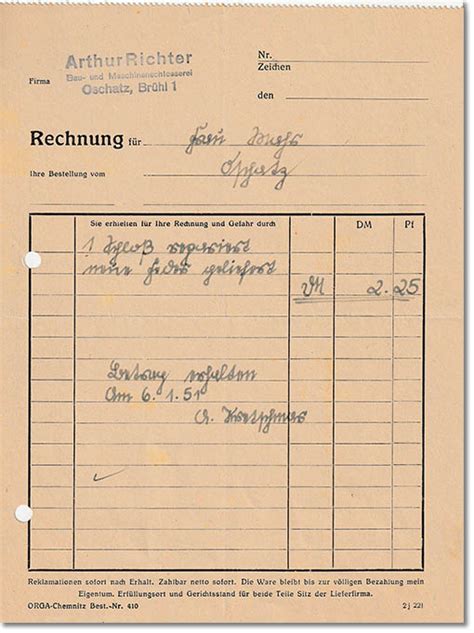 Arthur Richter
Bau- und Maschinenschlosserei
Oschatz, Brühl 1
Firma
Nr.
Zeichen
den
Rechnung für Frau
Oschatz
Ihre Bestellung vom
Sie erhielten für Ihre Rechnung und Gefahr durch DM Pf
1 Schloß repariert
neue Feder geliefert
DM 2.25
Betrag erhalten
Am 6.1.51
A. Kretschmar
Reklamationen sofort nach Erhalt. Zahlbar netto sofort. Die Ware bleibt bis zur völligen Bezahlung mein
Eigentum. Erfüllungsort und Gerichtsstand für beide Teile Sitz der Lieferfirma.
ORGA-Chemnitz Best.-Nr. 410 2 j 221